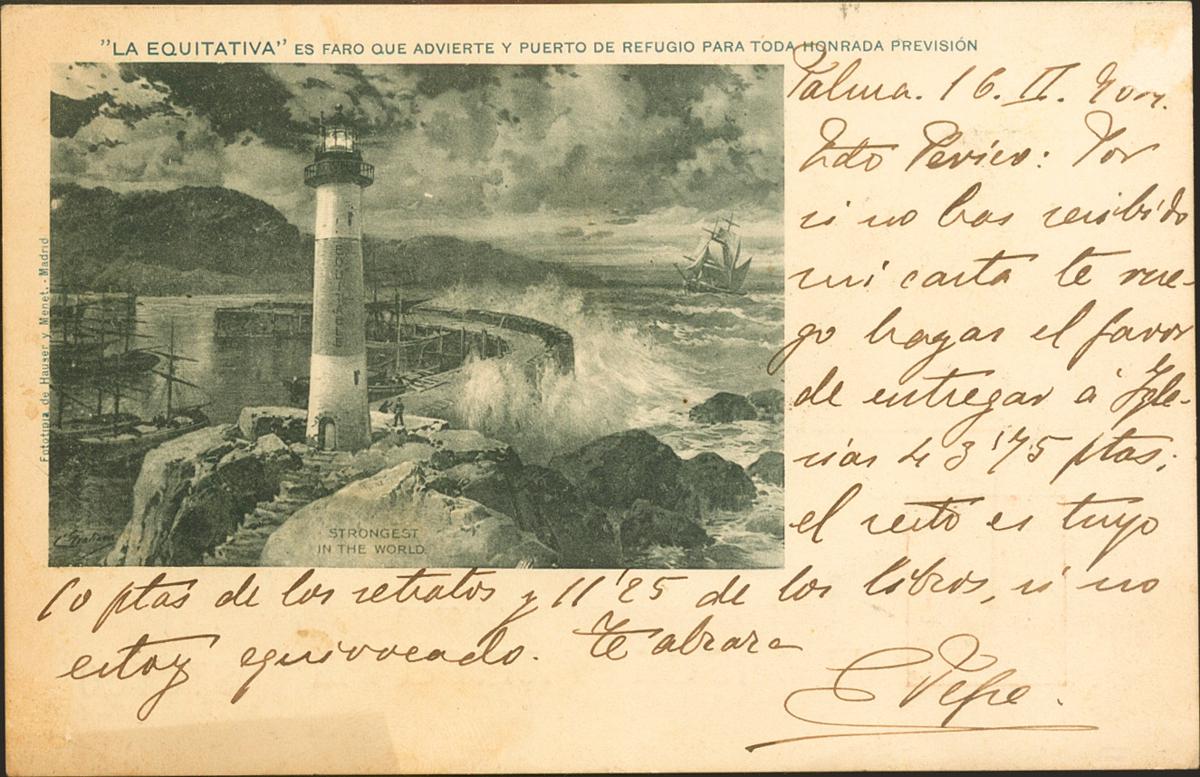 "LA EQUITATIVA" ES FARO QUE ADVIERTE Y PUERTO DE REFUGIO PARA TODA HONRADA PREVISIÓN
Palma. 16. II.
Perico: Por
si no has recibido
mi carta te rue-
go hagas el favor
de entregar á Igle-
sias 43'75 ptas;
el resto es tuyo
10 ptas de los retratos y 11'25 de los libros, si no
estoy equivocado. Te abraza
Pepe.
Fototipia de Hauser y Menet. - Madrid
EQUITABLE
STRONGEST
IN THE WORLD